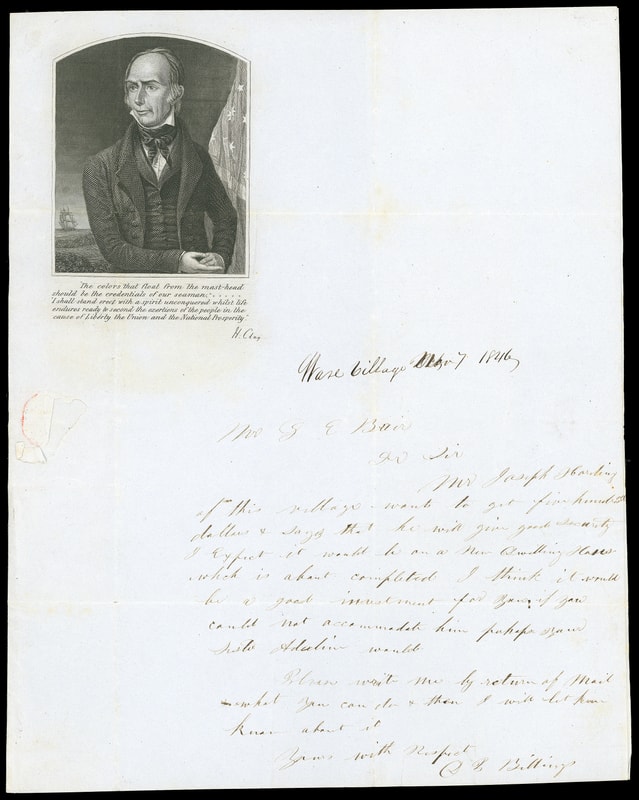 The colors that float from the mast-head
should be the credentials of our seaman,". . . . .
"I shall stand erect, with a spirit unconquered whilst life
endures ready to second the exertions of the people in the
cause of Liberty the Union and the National Prosperity"
H. Clay
Ware Village 7 1846
Mr E
Dr Sir
Mr Joseph Harding
of this village wants to get five hundred
dollars & says that he will give good security
I Expect it would be on a New Dwelling House
which is about completed I think it would
be a good investment for you, if you
could not accommodate him perhaps your
Adaline would
Please write me by return of Mail
what you can do & then I will let him
know about it
Yours with Respect
Billings